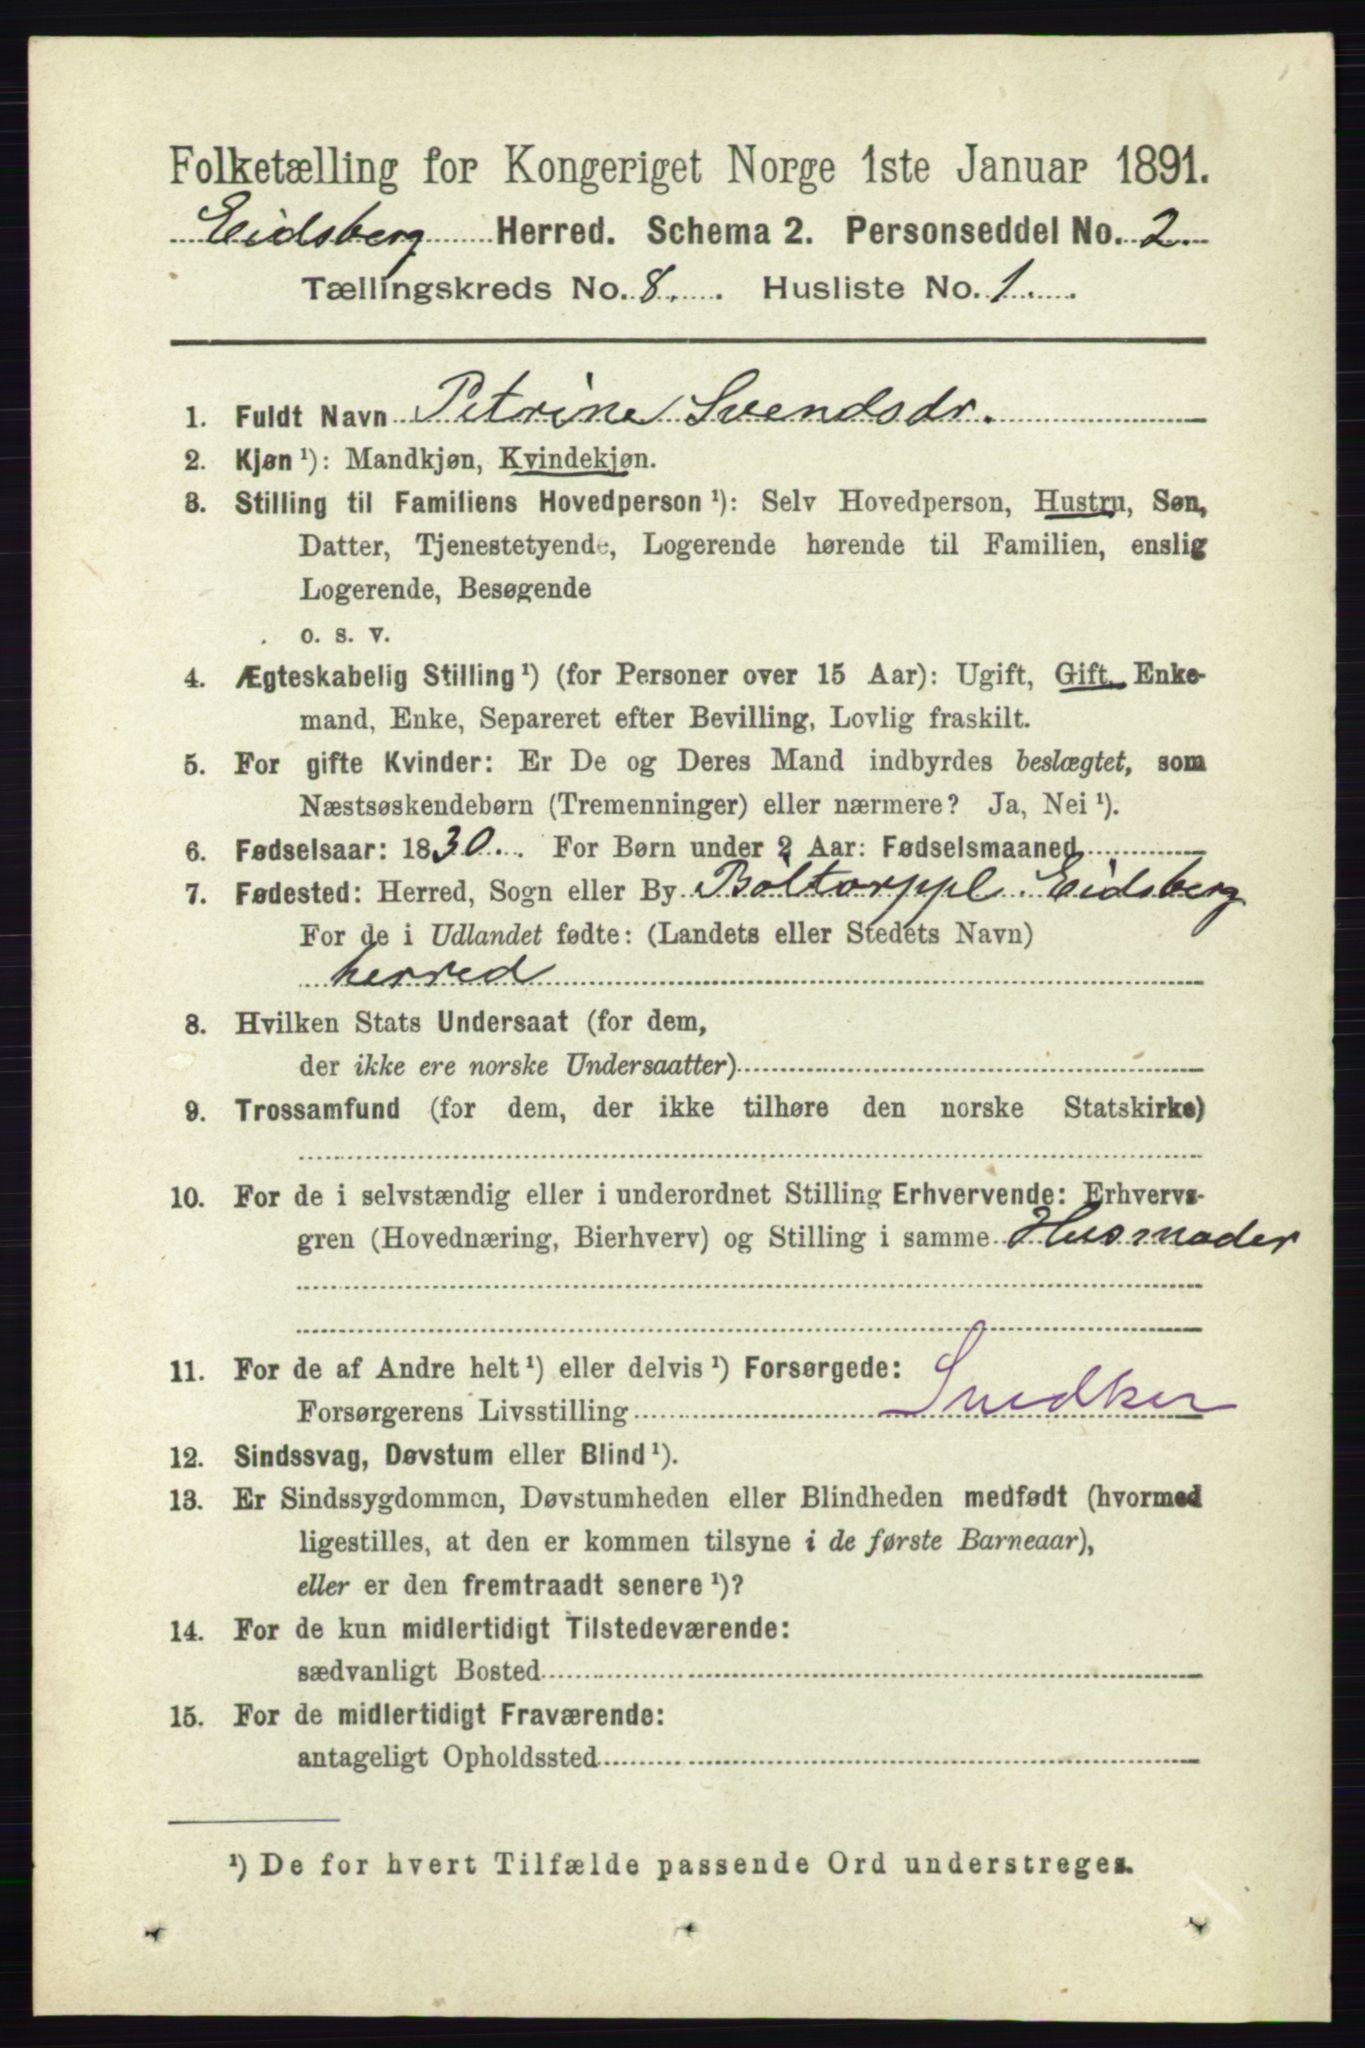 Folketælling for Kongeriget Norge 1ste Januar 1891.
Eidsberg Herred. Schema 2. Personseddel No. 2.
Tællingskreds No. 8. Husliste No. 1.
1. Fuldt Navn Petrine Svendsdr.
2. Kjøn ¹): Mandkjøn, Kvindekjøn.
3. Stilling til Familiens Hovedperson ¹): Selv Hovedperson, Hustru, Søn,
Datter, Tjenestetyende, Logerende hørende til Familien, enslig
Logerende, Besøgende
o. s. v.
4. Ægteskabelig Stilling ¹) (for Personer over 15 Aar): Ugift, Gift, Enke-
mand, Enke, Separeret efter Bevilling, Lovlig fraskilt.
5. For gifte Kvinder: Er De og Deres Mand indbyrdes beslægtet, som
Næstsøskendebørn (Tremenninger) eller nærmere? Ja, Nei ¹).
6. Fødselsaar: 1830. For Børn under 2 Aar: Fødselsmaaned
7. Fødested: Herred, Sogn eller By Boltorppl. Eidsberg
For de i Udlandet fødte: (Landets eller Stedets Navn)
herred
8. Hvilken Stats Undersaat (for dem,
der ikke ere norske Undersaatter)
9. Trossamfund (for dem, der ikke tilhøre den norske Statskirke)
10. For de i selvstændig eller i underordnet Stilling Erhvervende: Erhvervs-
gren (Hovednæring, Bierhverv) og Stilling i samme Husmoder
11. For de af Andre helt ¹) eller delvis ¹) Forsørgede:
Forsørgerens Livsstilling Snedker
12. Sindssvag, Døvstum eller Blind ¹).
13. Er Sindssygdommen, Døvstumheden eller Blindheden medfødt (hvormed
ligestilles, at den er kommen tilsyne i de første Barneaar),
eller er den fremtraadt senere ¹)?
14. For de kun midlertidigt Tilstedeværende:
sædvanligt Bosted
15. For de midlertidigt Fraværende:
antageligt Opholdssted
¹) De for hvert Tilfælde passende Ord understreges.